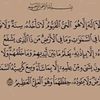 بِسْمِ اللَّهِ الرَّحْمَٰنِ الرَّحِيمِ
اللَّهُ لَا إِلَٰهَ إِلَّا هُوَ الْحَيُّ الْقَيُّومُ لَا تَأْخُذُهُ سِنَةٌ وَلَا نَوْمٌ
لَهُ مَا فِي السَّمَاوَاتِ وَمَا فِي الْأَرْضِ مَنْ ذَا الَّذِي يَشْفَعُ
عِنْدَهُ إِلَّا بِإِذْنِهِ يَعْلَمُ مَا بَيْنَ أَيْدِيهِمْ وَمَا خَلْفَهُمْ
وَلَا يُحِيطُونَ بِشَيْءٍ مِنْ عِلْمِهِ إِلَّا بِمَا شَاءَ وَسِعَ كُرْسِيُّهُ
السَّمَاوَاتِ وَالْأَرْضَ وَلَا يَئُودُهُ حِفْظُهُمَا وَهُوَ الْعَلِيُّ الْعَظِيمُ